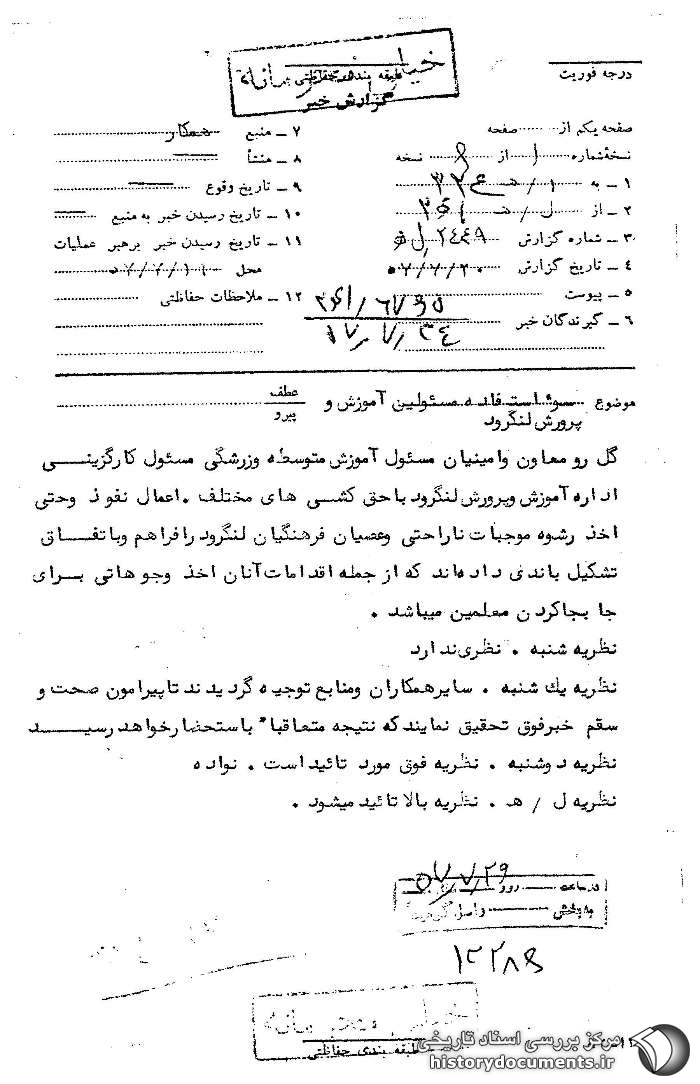 خیلی محرمانه
طبقه بندی حفاظتی
گزارش خبر
درجه فوریت
صفحه یکم از صفحه
نسخه شماره ۱ از نسخه
۱ ـ به ۱ / هـ ۳۲۴
۲ ـ از ل / هـ
۳ ـ شماره گزارش ۲۴۴۹
۴ ـ تاریخ گزارش ۵۷/۷/۲۰
۵ ـ پیوست
۶ ـ گیرندگان خبر
۷ ـ منبع همکار
۸ ـ منشأ
۹ ـ تاریخ وقوع
۱۰ ـ تاریخ رسیدن خبر به منبع
۱۱ ـ تاریخ رسیدن خبر برهبر عملیات
محل ۵۷/۷/۱۹
۱۲ ـ ملاحظات حفاظتی
موضوع سوءاستفاده مسئولین آموزش و
پرورش لنگرود
عطف
پیرو
گل رو معاون وامینیان مسئول آموزش متوسطه وزرشگی مسئول کارگزینی
اداره آموزش وپرورش لنگرود باحق کشی های مختلف . اعمال نفوذ وحتی
اخذ رشوه موجبات ناراحتی وعصیان فرهنگیان لنگرود رافراهم وباتفاق
تشکیل باندی داده اند که از جمله اقدامات آنان اخذ وجوهاتی برای
جابجاکردن معلمین میباشد .
نظریه شنبه . نظری ندارد
نظریه یك شنبه . سایرهمکاران ومنابع توجیه گردیدند تاپیرامون صحت و
سقم خبرفوق تحقیق نمایندکه نتیجه متعاقبا" باستحضارخواهد رسید
نظریه دوشنبه . نظریه فوق مورد تائیداست . نواده
نظریه ل / هـ . نظریه بالا تائید میشود .
۵۷/۷/۲۹
در ساعت روز
به بخش واصل گردید
خیلی محرمانه
طبقه بندی حفاظتی
مرکز بررسی اسناد تاریخی
historydocuments.ir